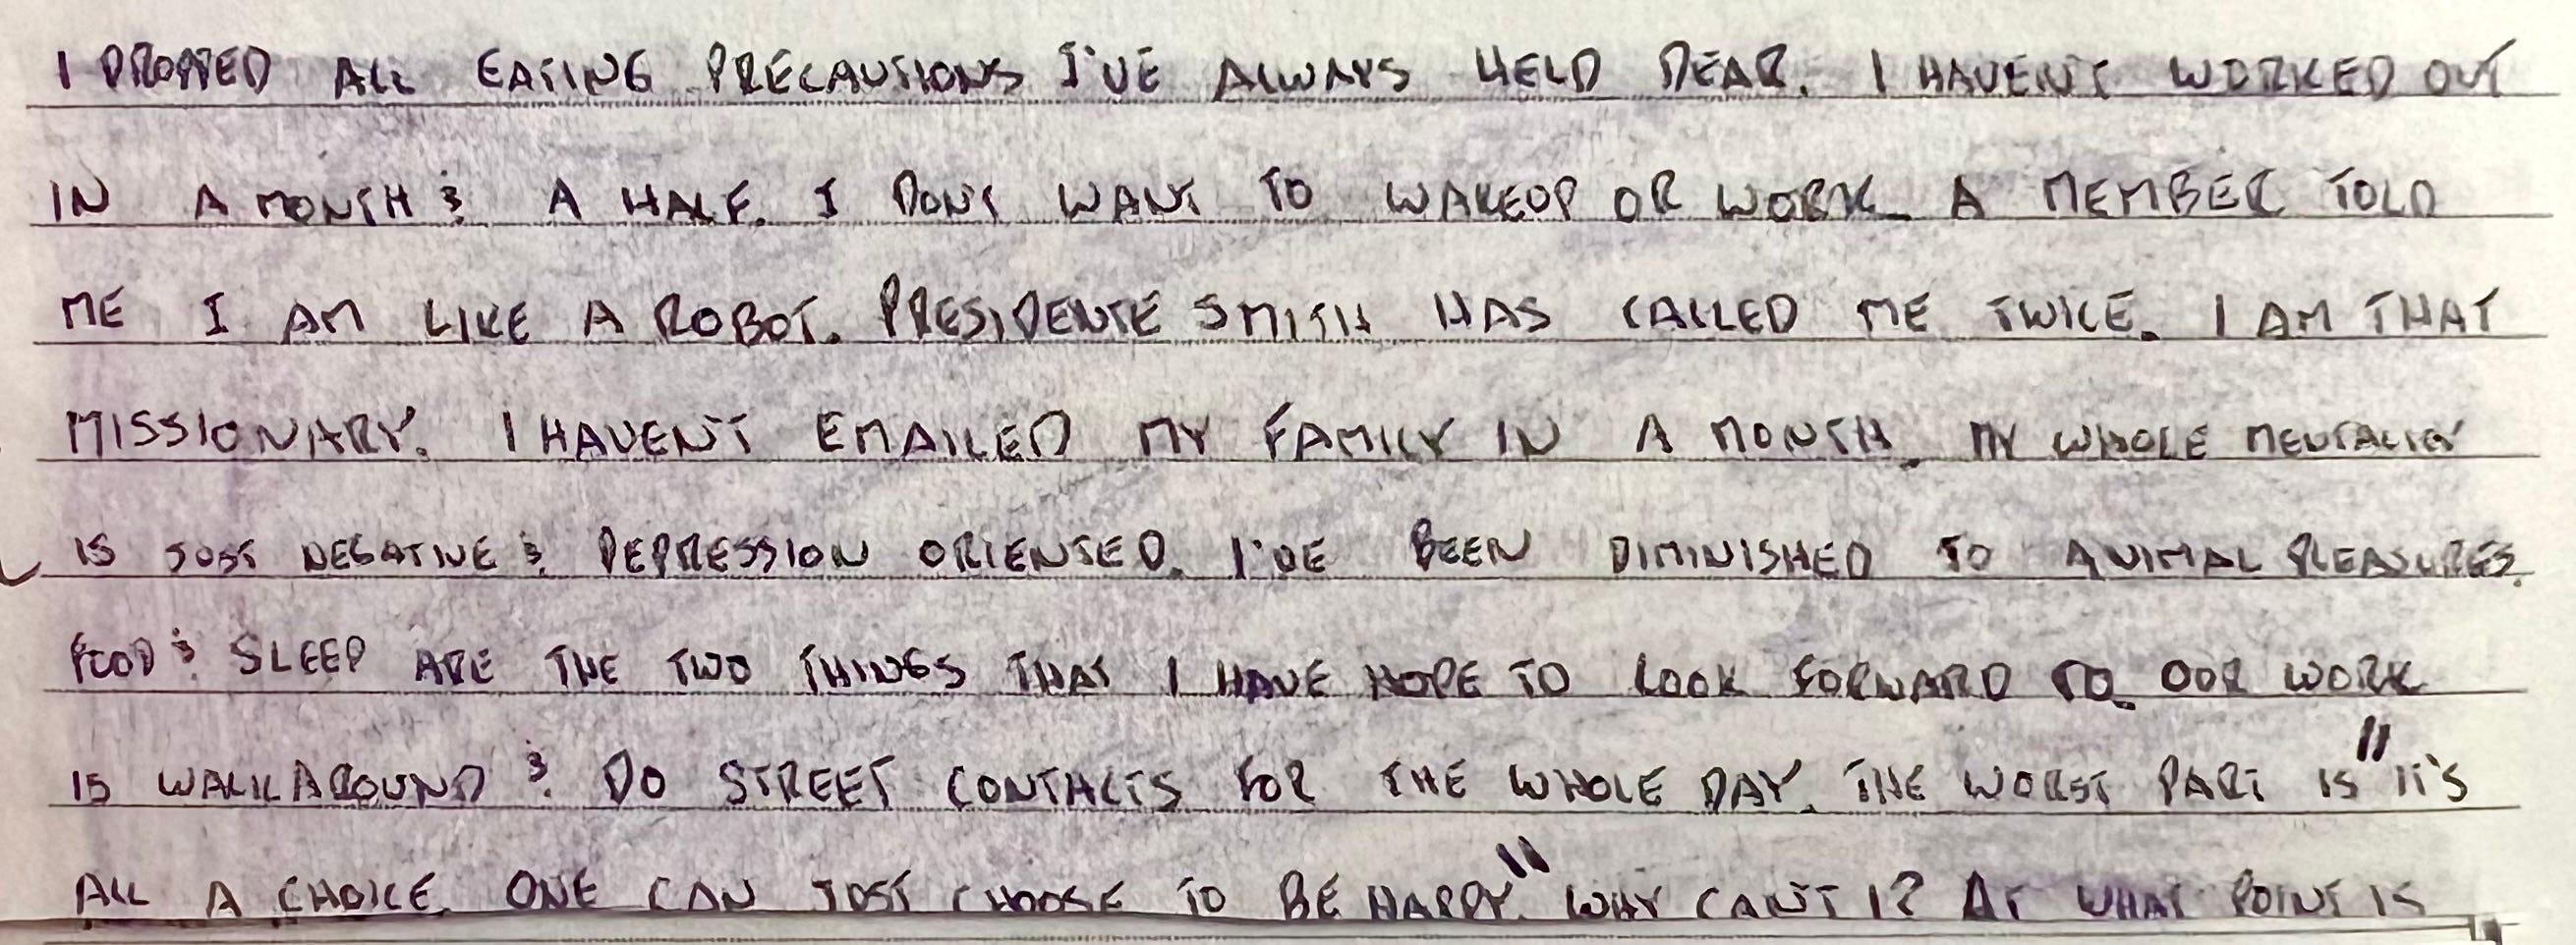 I DROPPED ALL EATING PRECAUTIONS I'VE ALWAYS HELD DEAR. I HAVEN'T WORKED OUT
IN A MONTH & A HALF. I DON'T WANT TO WAKEUP OR WORK. A MEMBER TOLD
ME I AM LIKE A ROBOT. PRESIDENTE SMITH HAS CALLED ME TWICE. I AM THAT
MISSIONARY. I HAVEN'T EMAILED MY FAMILY IN A MONTH. MY WHOLE MENTALITY
IS JUST NEGATIVE & DEPRESSION ORIENTED. I'VE BEEN DIMINISHED TO ANIMAL PLEASURES.
FOOD & SLEEP ARE THE TWO THINGS THAT I HAVE HOPE TO LOOK FORWARD TO. OUR WORK
IS WALK AROUND & DO STREET CONTACTS FOR THE WHOLE DAY. THE WORST PART IS "IT'S
ALL A CHOICE. ONE CAN JUST CHOOSE TO BE HAPPY." WHY CAN'T I? AT WHAT POINT IS